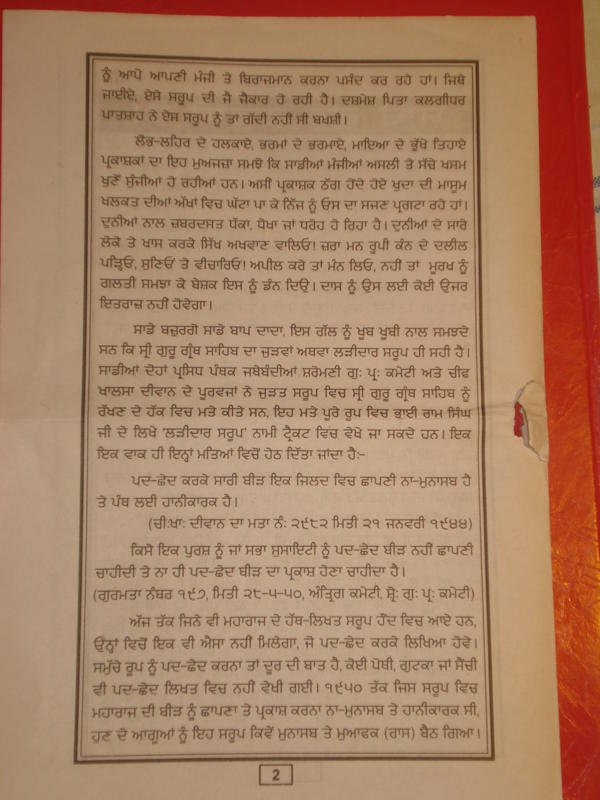 ਨੂੰ ਆਪੋ ਆਪਣੀ ਮੰਜੀ ਤੇ ਬਿਰਾਜਮਾਨ ਕਰਨਾ ਪਸੰਦ ਕਰ ਰਹੇ ਹਾਂ। ਜਿਥੇ
ਜਾਈਏ, ਏਸੇ ਸਰੂਪ ਦੀ ਜੈ ਜੈਕਾਰ ਹੋ ਰਹੀ ਹੈ। ਦਸ਼ਮੇਸ਼ ਪਿਤਾ ਕਲਗੀਧਰ
ਪਾਤਸ਼ਾਹ ਨੇ ਏਸ ਸਰੂਪ ਨੂੰ ਤਾਂ ਗੱਦੀ ਨਹੀਂ ਸੀ ਬਖਸ਼ੀ।
ਲੋਭ-ਲਹਿਰ ਦੇ ਹਲਕਾਏ, ਭਰਮਾਂ ਦੇ ਭਰਮਾਏ, ਮਾਇਆ ਦੇ ਭੁੱਖੇ ਤਿਹਾਏ
ਪ੍ਰਕਾਸ਼ਕਾਂ ਦਾ ਇਹ ਮੁਅਜਜ਼ਾ ਸਮਝੋ ਕਿ ਸਾਡੀਆਂ ਮੰਜੀਆਂ ਅਸਲੀ ਤੇ ਸੱਚੇ ਖਸਮ
ਖੁਣੋਂ ਸੁੰਜੀਆਂ ਹੋ ਰਹੀਆਂ ਹਨ। ਅਸੀਂ ਪ੍ਰਕਾਸ਼ਕ ਠੱਗ ਹੋਂਦੇ ਹੋਏ ਖੁਦਾ ਦੀ ਮਾਸੂਮ
ਖਲਕਤ ਦੀਆਂ ਅੱਖਾਂ ਵਿਚ ਘੱਟਾ ਪਾ ਕੇ ਨਿੱਜ ਨੂੰ ਓਸ ਦਾ ਸਜਣ ਪ੍ਰਗਟਾ ਰਹੇ ਹਾਂ।
ਦੁਨੀਆਂ ਨਾਲ ਜ਼ਬਰਦਸਤ ਧੱਕਾ, ਧੋਖਾ ਜਾਂ ਧਰੋਹ ਹੋ ਰਿਹਾ ਹੈ। ਦੁਨੀਆਂ ਦੇ ਸਾਰੇ
ਲੋਕੋ ਤੇ ਖਾਸ ਕਰਕੇ ਸਿੱਖ ਅਖਵਾਣ ਵਾਲਿਓ! ਜ਼ਰਾ ਮਨ ਰੂਪੀ ਕੰਨ ਦੇ ਦਲੀਲ
ਪੜ੍ਹਿਓ, ਸੁਣਿਓਂ ਤੇ ਵੀਚਾਰਿਓ! ਅਪੀਲ ਕਰੇ ਤਾਂ ਮੰਨ ਲਿਓ, ਨਹੀਂ ਤਾਂ ਮੂਰਖ ਨੂੰ
ਗਲਤੀ ਸਮਝਾ ਕੇ ਬੇਸ਼ਕ ਇਸ ਨੂੰ ਡੰਨ ਦਿਉ। ਦਾਸ ਨੂੰ ਉਸ ਲਈ ਕੋਈ ਉਜਰ
ਇਤਰਾਜ਼ ਨਹੀਂ ਹੋਵੇਗਾ।
ਸਾਡੇ ਬਜ਼ੁਰਗ ਸਾਡੇ ਬਾਪ ਦਾਦਾ, ਇਸ ਗੱਲ ਨੂੰ ਖੂਬ ਖੂਬੀ ਨਾਲ ਸਮਝਦੇ
ਸਨ ਕਿ ਸ੍ਰੀ ਗੁਰੂ ਗ੍ਰੰਥ ਸਾਹਿਬ ਦਾ ਜੁੜਵਾਂ ਅਥਵਾ ਲੜੀਦਾਰ ਸਰੂਪ ਹੀ ਸਹੀ ਹੈ।
ਸਾਡੀਆਂ ਦੋਹਾਂ ਪ੍ਰਸਿਧ ਪੰਥਕ ਜਥੇਬੰਦੀਆਂ ਸ਼ਰੋਮਣੀ ਗੁ: ਪ੍ਰ: ਕਮੇਟੀ ਅਤੇ ਚੀਫ
ਖਾਲਸਾ ਦੀਵਾਨ ਦੇ ਪੂਰਵਜਾਂ ਨੇ ਜੁੜਤ ਸਰੂਪ ਵਿਚ ਸ੍ਰੀ ਗੁਰੂ ਗ੍ਰੰਥ ਸਾਹਿਬ ਨੂੰ
ਰੱਖਣ ਦੇ ਹੱਕ ਵਿਚ ਮਤੇ ਕੀਤੇ ਸਨ, ਇਹ ਮਤੇ ਪੂਰੇ ਰੂਪ ਵਿਚ ਭਾਈ ਰਾਮ ਸਿੰਘ
ਜੀ ਦੇ ਲਿਖੇ 'ਲੜੀਦਾਰ ਸਰੂਪ' ਨਾਮੀ ਟ੍ਰੈਕਟ ਵਿਚ ਵੇਖੇ ਜਾ ਸਕਦੇ ਹਨ। ਇਕ
ਇਕ ਵਾਕ ਹੀ ਇਨ੍ਹਾਂ ਮਤਿਆਂ ਵਿਚੋਂ ਹੇਠ ਦਿੱਤਾ ਜਾਂਦਾ ਹੈ:-
ਪਦ-ਛੇਦ ਕਰਕੇ ਸਾਰੀ ਬੀੜ ਇਕ ਜਿਲਦ ਵਿਚ ਛਾਪਣੀ ਨਾ-ਮੁਨਾਸਬ ਹੈ
ਤੇ ਪੰਥ ਲਈ ਹਾਨੀਕਾਰਕ ਹੈ।
(ਚੀ:ਖਾ: ਦੀਵਾਨ ਦਾ ਮਤਾ ਨੰ: ੨੯੮੨ ਮਿਤੀ ੨੧ ਜਨਵਰੀ ੧੯੪੪)
ਕਿਸੇ ਇਕ ਪੁਰਸ਼ ਨੂੰ ਜਾਂ ਸਭਾ ਸੁਸਾਇਟੀ ਨੂੰ ਪਦ-ਛੇਦ ਬੀੜ ਨਹੀਂ ਛਾਪਣੀ
ਚਾਹੀਦੀ ਤੇ ਨਾ ਹੀ ਪਦ-ਛੇਦ ਬੀੜ ਦਾ ਪ੍ਰਕਾਸ਼ ਹੋਣਾ ਚਾਹੀਦਾ ਹੈ।
(ਗੁਰਮਤਾ ਨੰਬਰ ੧੯੭, ਮਿਤੀ ੨੮-੫-੫੦, ਅੰਤ੍ਰਿਗ ਕਮੇਟੀ, ਸ਼੍ਰੋ: ਗੁ: ਪ੍ਰ: ਕਮੇਟੀ)
ਅੱਜ ਤੱਕ ਜਿਨੇ ਵੀ ਮਹਾਰਾਜ ਦੇ ਹੱਥ-ਲਿਖਤ ਸਰੂਪ ਹੋਂਦ ਵਿਚ ਆਏ ਹਨ,
ਉਨ੍ਹਾਂ ਵਿਚੋਂ ਇਕ ਵੀ ਐਸਾ ਨਹੀਂ ਮਿਲੇਗਾ, ਜੋ ਪਦ-ਛੇਦ ਕਰਕੇ ਲਿਖਿਆ ਹੋਵੇ।
ਸਮੁੱਚੇ ਰੂਪ ਨੂੰ ਪਦ-ਛੇਦ ਕਰਨਾ ਤਾਂ ਦੂਰ ਦੀ ਬਾਤ ਹੈ, ਕੋਈ ਪੋਥੀ, ਗੁਟਕਾ ਜਾਂ ਸੈਂਚੀ
ਵੀ ਪਦ-ਛੇਦ ਲਿਖਤ ਵਿਚ ਨਹੀਂ ਵੇਖੀ ਗਈ। ੧੯੫੦ ਤੱਕ ਜਿਸ ਸਰੂਪ ਵਿਚ
ਮਹਾਰਾਜ ਦੀ ਬੀੜ ਨੂੰ ਛਾਪਣਾ ਤੇ ਪ੍ਰਕਾਸ਼ ਕਰਨਾ ਨਾ-ਮੁਨਾਸਬ ਤੇ ਹਾਨੀਕਾਰਕ ਸੀ,
ਹੁਣ ਦੇ ਆਗੂਆਂ ਨੂੰ ਇਹ ਸਰੂਪ ਕਿਵੇਂ ਮੁਨਾਸਬ ਤੇ ਮੁਆਫਕ (ਰਾਸ) ਬੈਠ ਗਿਆ।
2